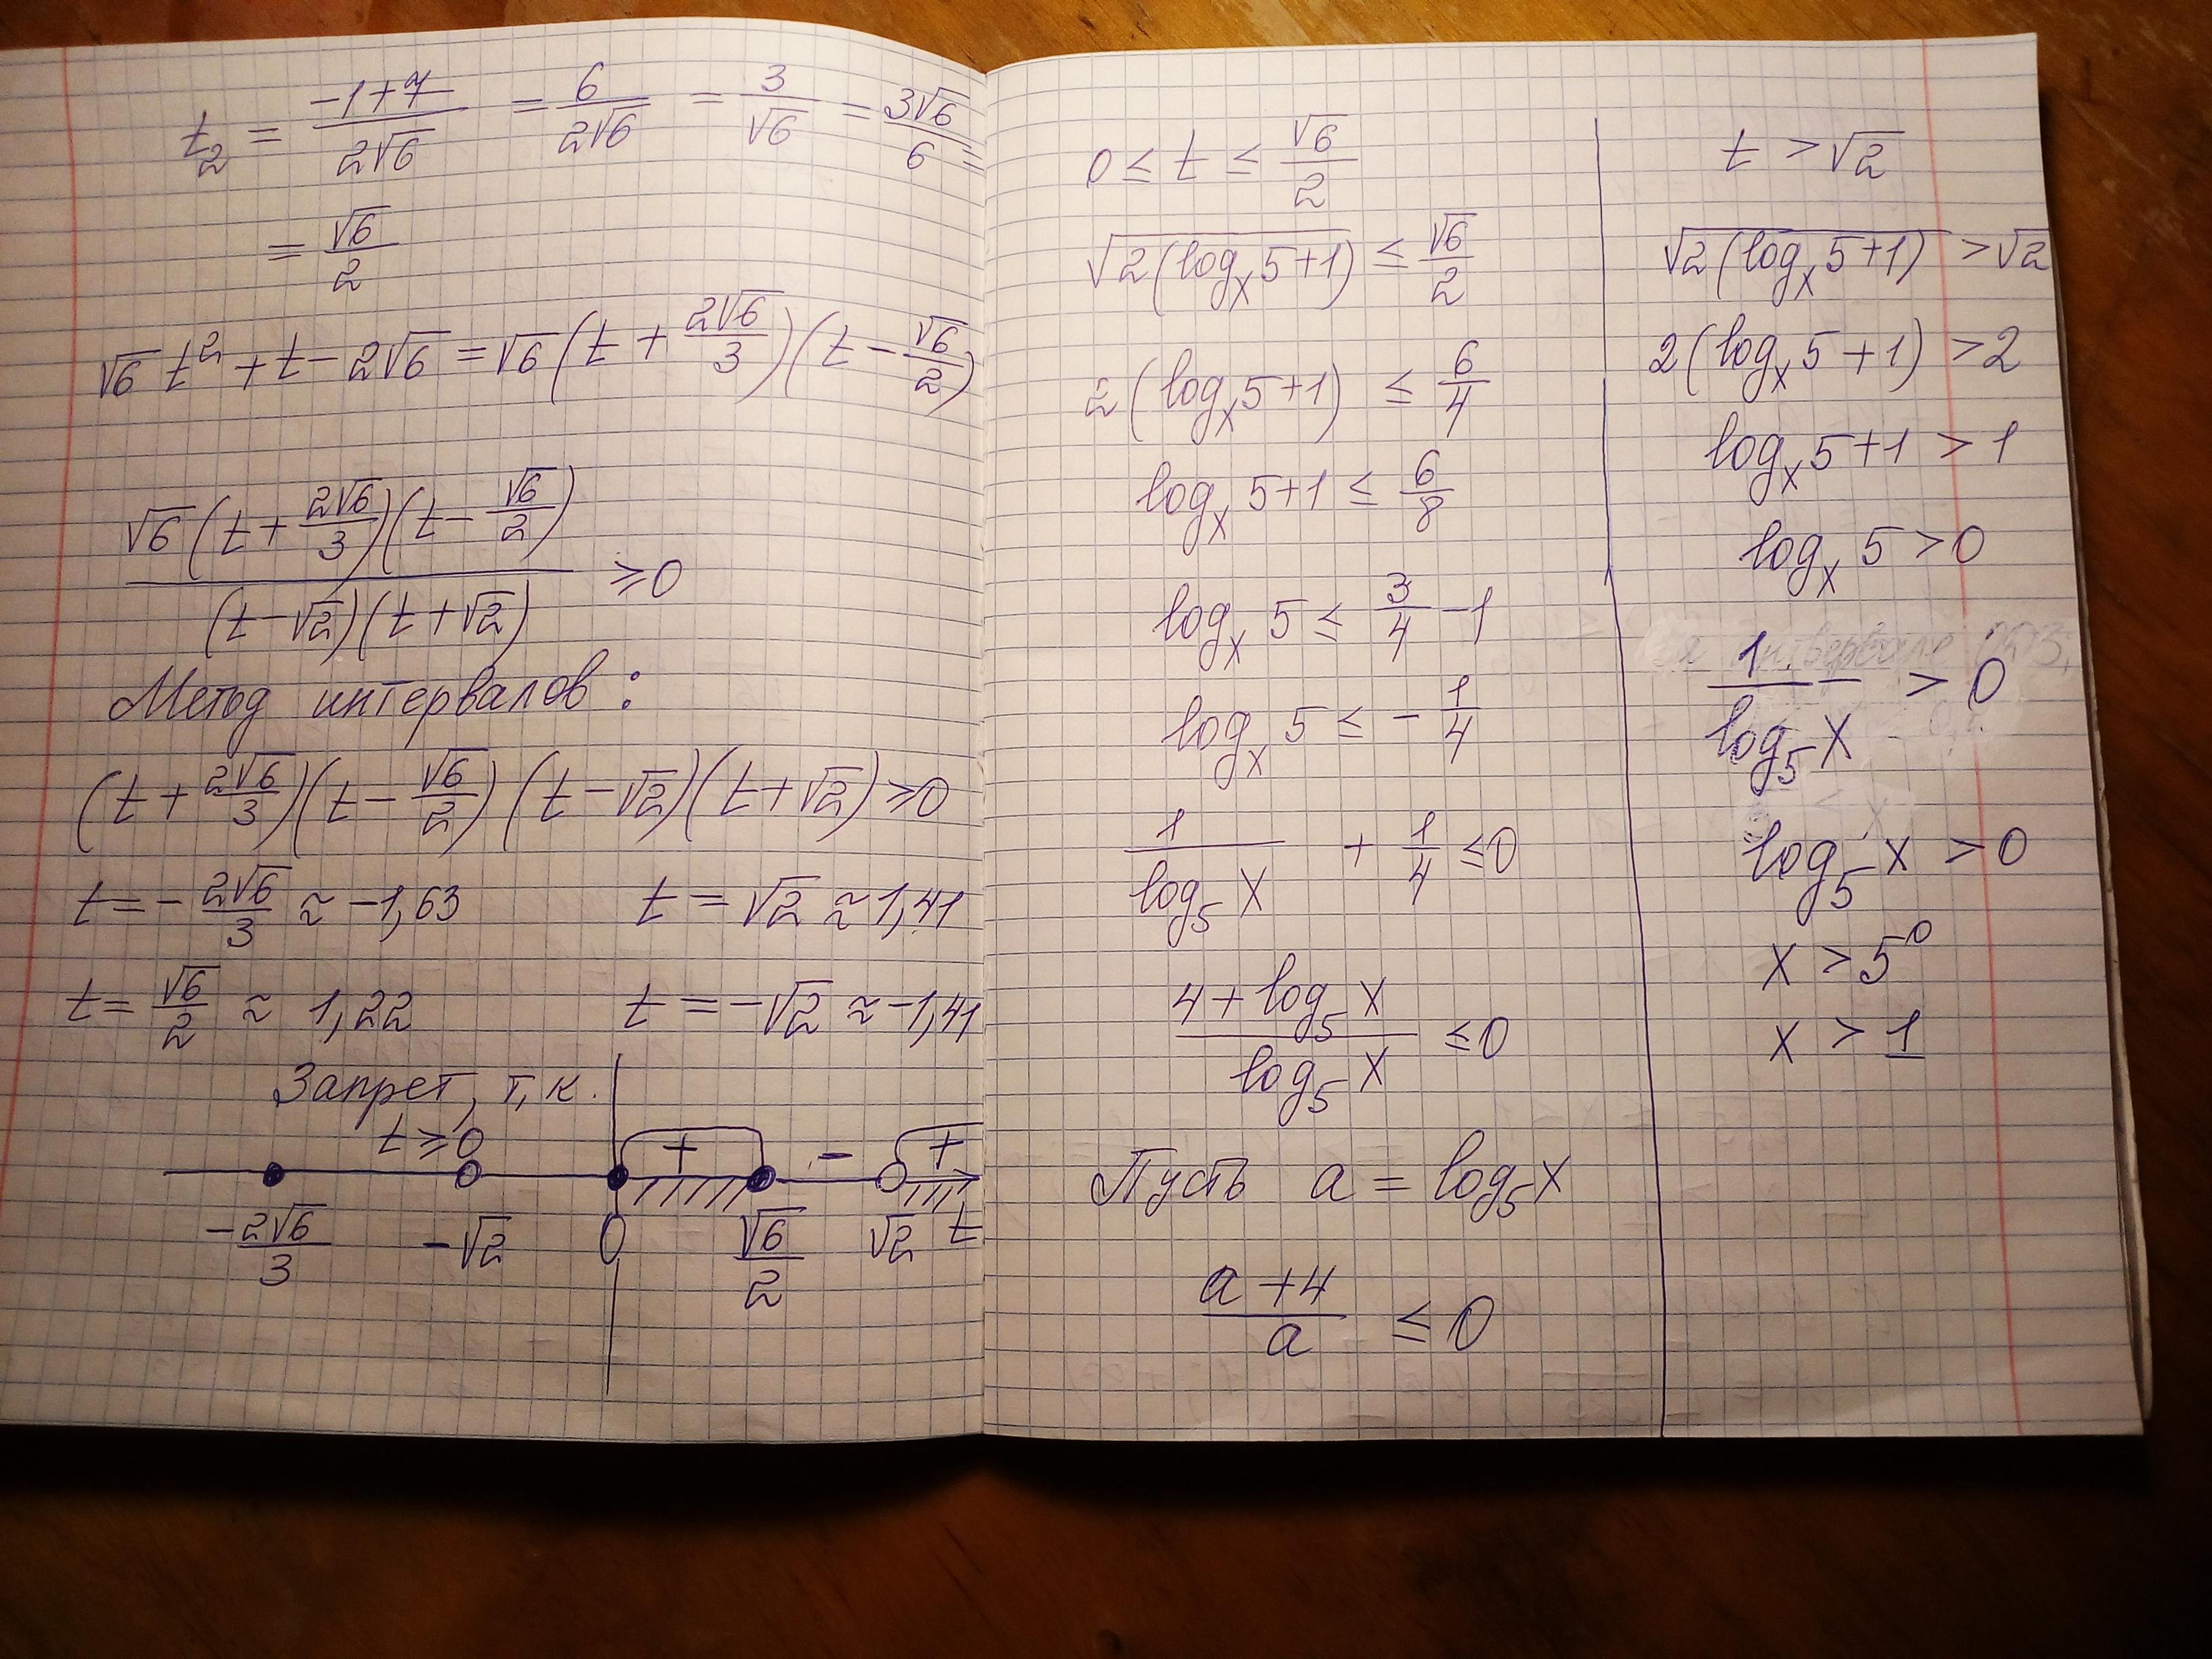 t₂ = (-1+7)/(2√6) = 6/(2√6) = 3/√6 = 3√6/6 =
= √6/2
√6 t² + t - 2√6 = √6 (t + 2√6/3)(t - √6/2)
√6 (t + 2√6/3)(t - √6/2) / ((t-√2)(t+√2)) ≥ 0
Метод интервалов:
(t + 2√6/3)(t - √6/2)(t - √2)(t + √2) ≥ 0
t = -2√6/3 ≈ -1,63
t = √2 ≈ 1,41
t = √6/2 ≈ 1,22
t = -√2 ≈ -1,41
Запрет, т.к.
t ≥ 0
+ - +
-2√6/3 -√2 0 √6/2 √2 t
0 ≤ t ≤ √6/2
√(2(logₓ5+1)) ≤ √6/2
2(logₓ5+1) ≤ 6/4
logₓ5+1 ≤ 6/8
logₓ5 ≤ 3/4 - 1
logₓ5 ≤ -1/4
1/log₅x + 1/4 ≤ 0
(4 + log₅x)/log₅x ≤ 0
Пусть a = log₅x
(a+4)/a ≤ 0
t > √2
√(2(logₓ5+1)) > √2
2(logₓ5+1) > 2
logₓ5+1 > 1
logₓ5 > 0
1/log₅x > 0
log₅x > 0
x > 5⁰
x > 1